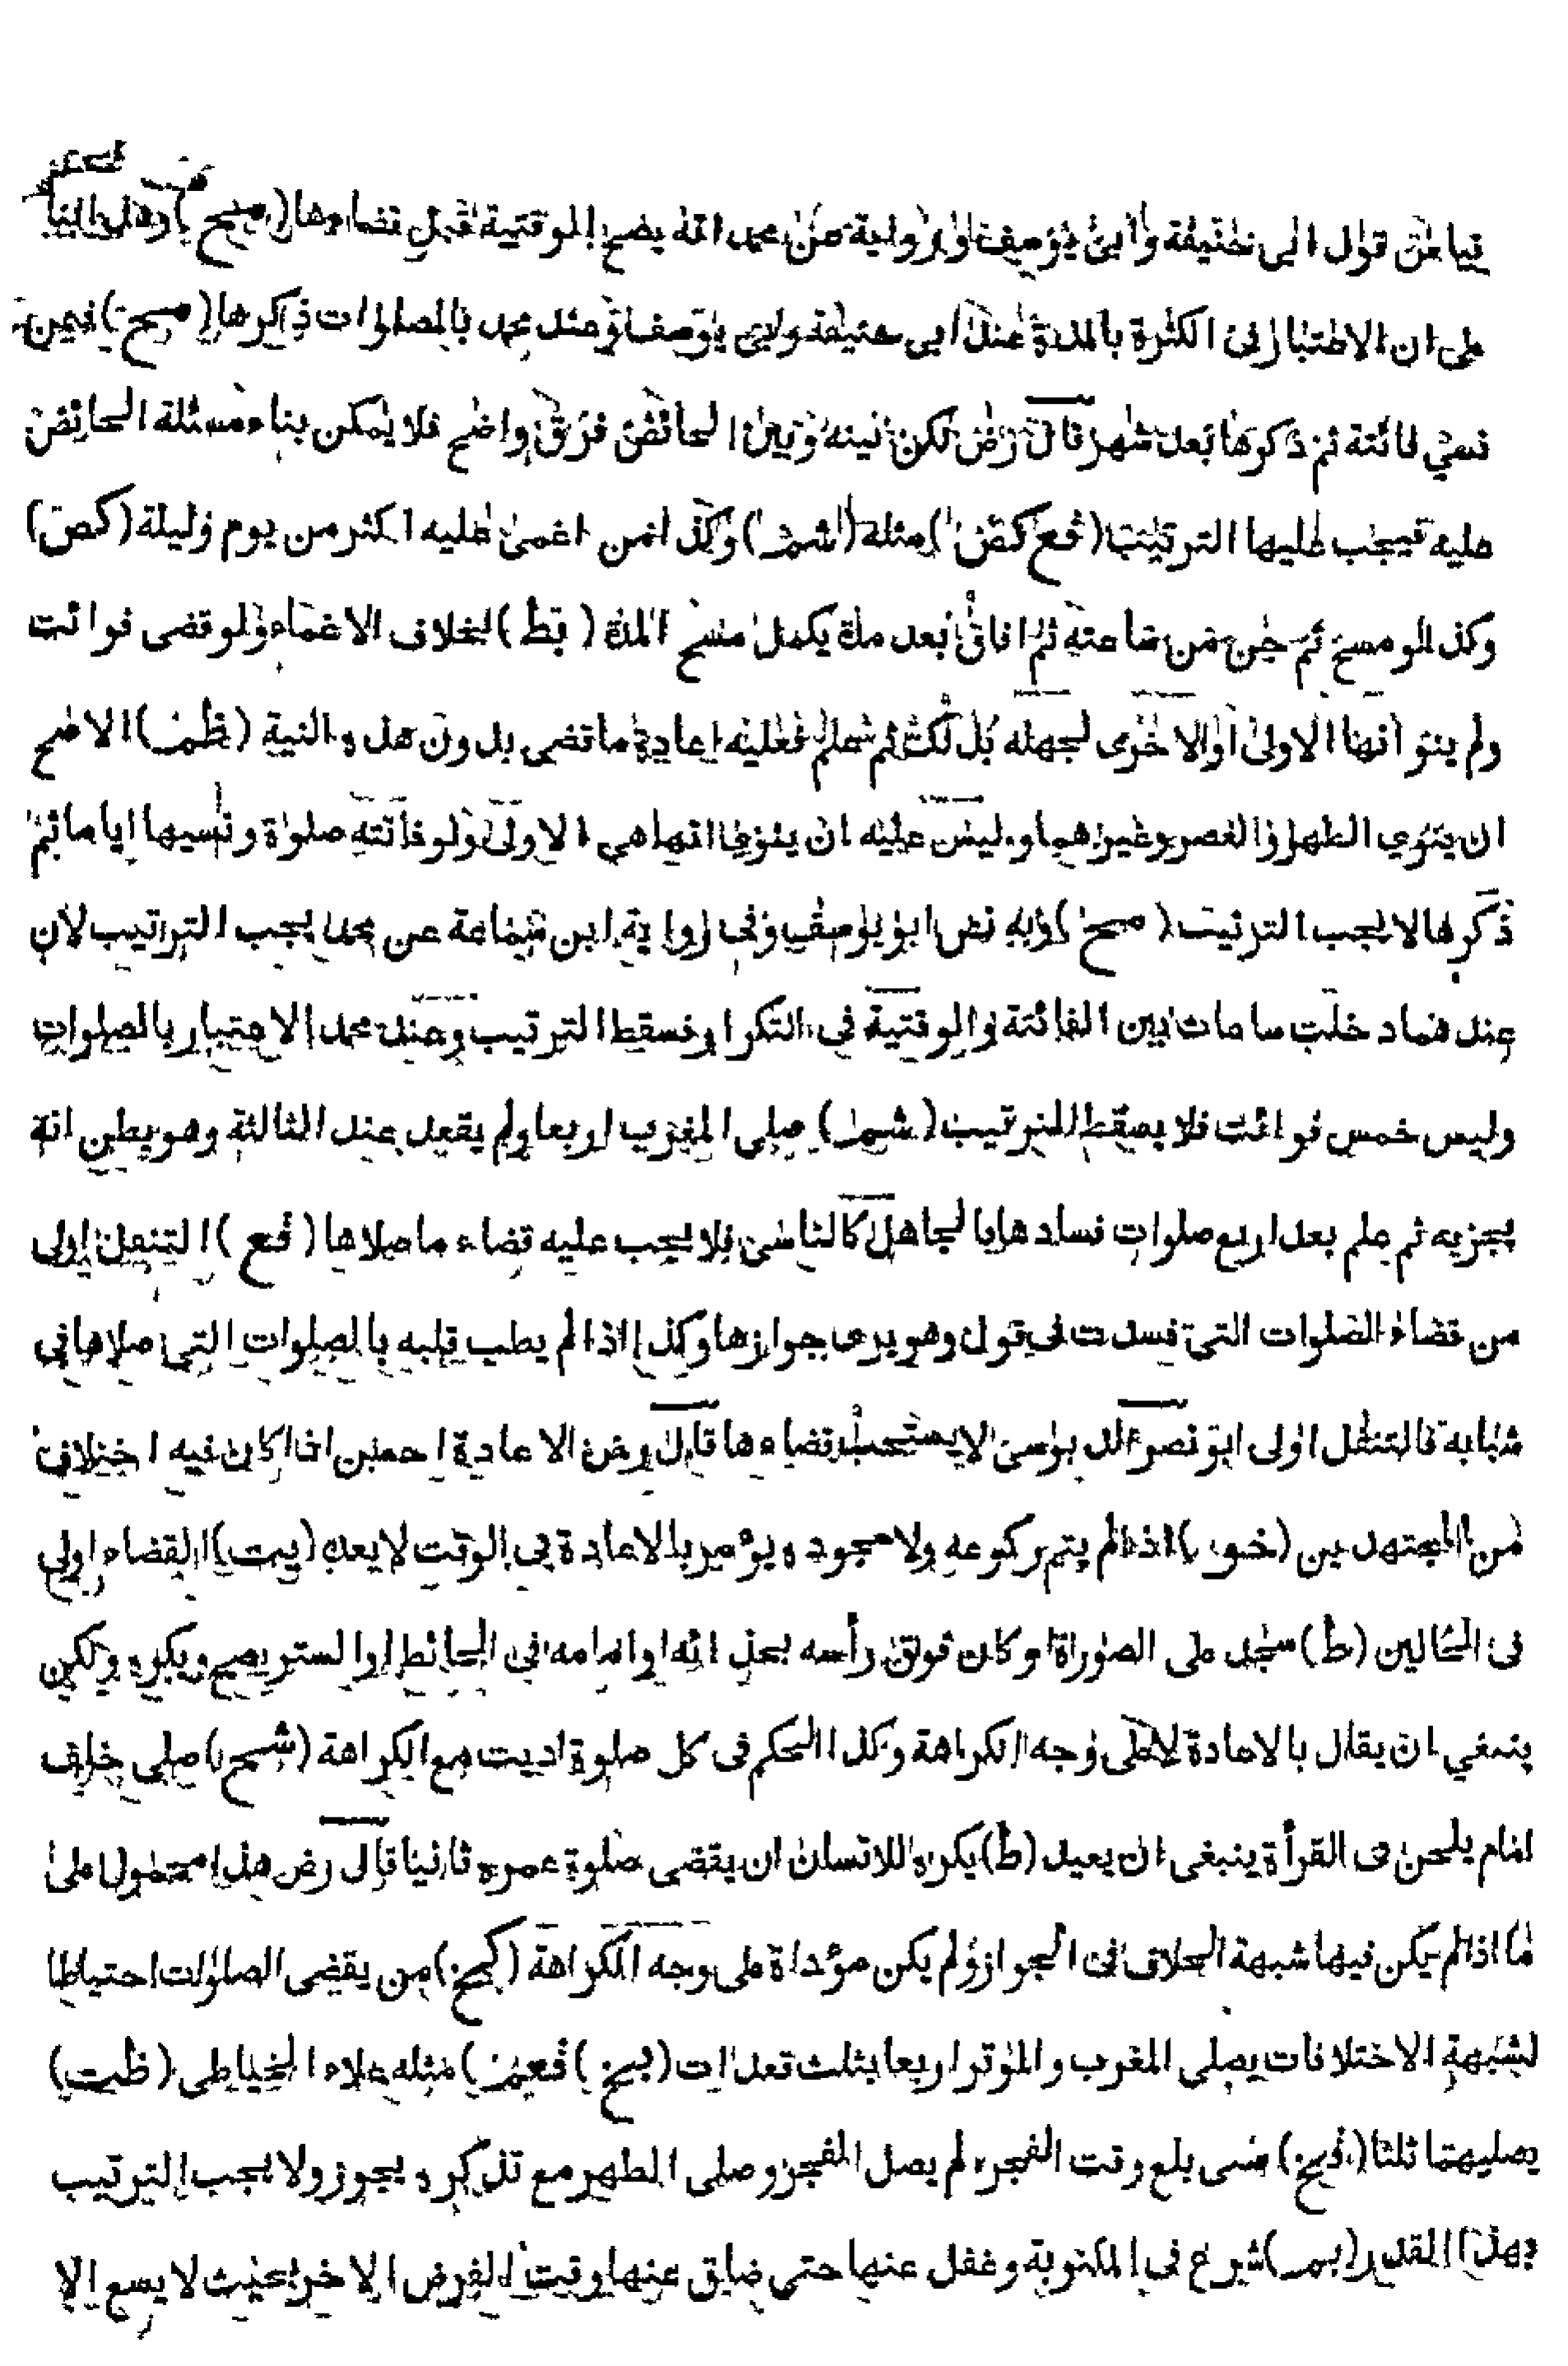 قياس قول ابي حنيفة وابي يوسف او رواية عن محمد انه يصح الوقتية قبل قضاءها (صح) وهل البنا
على ان الاعتبار في الكثرة بالمدة عند ابي حنيفة وابي يوسف وعند محمد بالصلوات ذكرها (صح) فيمن
نسي فائتة ثم ذكرها بعد شهر قال رض لكن بينه وبين الحائض فرق واضح فلا يمكن بناء مسئلة الحائض
عليه فيجب عليها الترتيب (فع كص) مثله (شم) وكذا من اغمى عليه اكثر من يوم وليلة (كص)
وكذا لو مسح ثم جن من ساعته ثم افاق بعد مدة يكمل مسح المدة (بط) بخلاف الاغماء ولو قضى فوائت
ولم ينو انها الاولى او الاخرى لجهله بذلك ثم علم فعليه اعادة ما قضى بدون هذه النية (ظم) الاصح
ان ينوي الظهر والعصر وغيرهما وليس عليه ان ينوي انها هي الاولى ولو فاتته صلوة ونسيها اياما ثم
ذكرها لا يجب الترتيب (صح) وبه نص ابو يوسف وفي رواية ابن سماعة عن محمد يجب الترتيب لان
عندهما دخلت ساعات بين الفائتة والوقتية في التكرار فسقط الترتيب وعند محمد الاعتبار بالصلوات
وليس خمس فوائت فلا يسقط الترتيب (شم) صلى المغرب اربعا ولم يقعد عند الثالثة وهو يظن انه
يجزيه ثم علم بعد اربع صلوات فسادها فالجاهل كالناسي فلا يجب عليه قضاء ما صلاها (فع) التنفل اولى
من قضاء الصلوات التي فسدت في قول وهو يرى جوازها وكذا اذا لم يطب قلبه بالصلوات التي صلاها في
شبابه فالتنفل اولى ابو نصر الدبوسي لا يستحب قضاءها قال رض الاعادة احسن اذا كان فيه اختلاف
من المجتهدين اذا لم يتم ركوعه ولا سجوده يؤمر بالاعادة في الوقت لا بعده (يت) القضاء اولى
في الحالين (ط) سجد على الصورة او كان فوق رأسه بحذائه او امامه في الحائط او الستر يصح ويكره ولكن
ينبغي ان يقال بالاعادة لا على وجه الكراهة وكذا الحكم في كل صلوة اديت مع الكراهة (شح) صلى خلف
امام يلحن في القرأة ينبغي ان يعيد (ط) يكره للانسان ان يقضى صلوة عمره ثانيا قال رض هذا محمول على
ما اذا لم يكن فيها شبهة الخلاف في الجواز ولم يكن مؤداة على وجه الكراهة (كبخ) من يقضى الصلوات احتياطا
لشبهة الاختلافات يصلي المغرب والوتر اربعا بثلث قعدات (بخ) مثله علاء الخياطى (ظت)
يصليهما ثلثا صبى بلغ وقت الفجر لم يصل الفجر وصلى الظهر مع تذكره يجوز ولا يجب الترتيب
بهذا القدر (بم) شرع في المكتوبة وغفل عنها حتى ضاق عنها وقت الفرض الاخر بحيث لا يسع الا